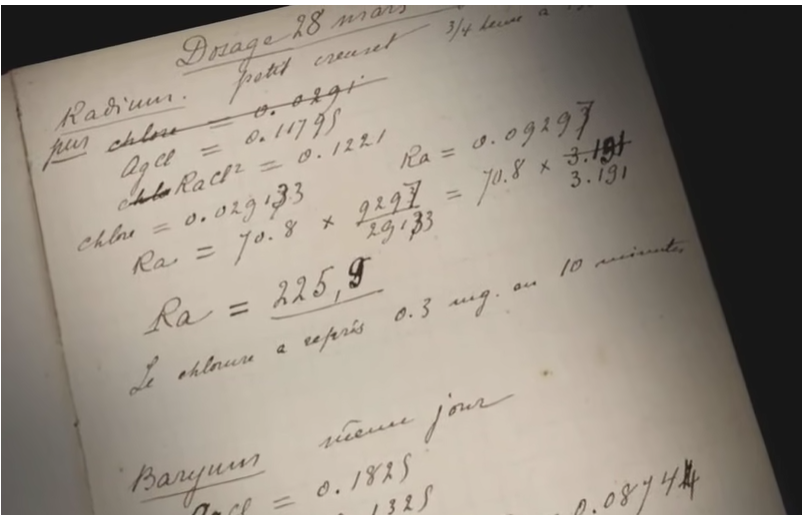 Dosage 28 mars
Radium. petit creuset 3/4 heure à
pur chlore = 0.0291
AgCl = 0.11795
RaCl² = 0.1221 Ra = 0.09297
chlore = 0.029133
Ra = 70.8 × 9297/29133 = 70.8 × 3.191 3.191
Ra = 225,9
Le chlorure a repris 0.3 mg. en 10 minutes
Baryum même jour
AgCl = 0.1825
0.1325 0.08744